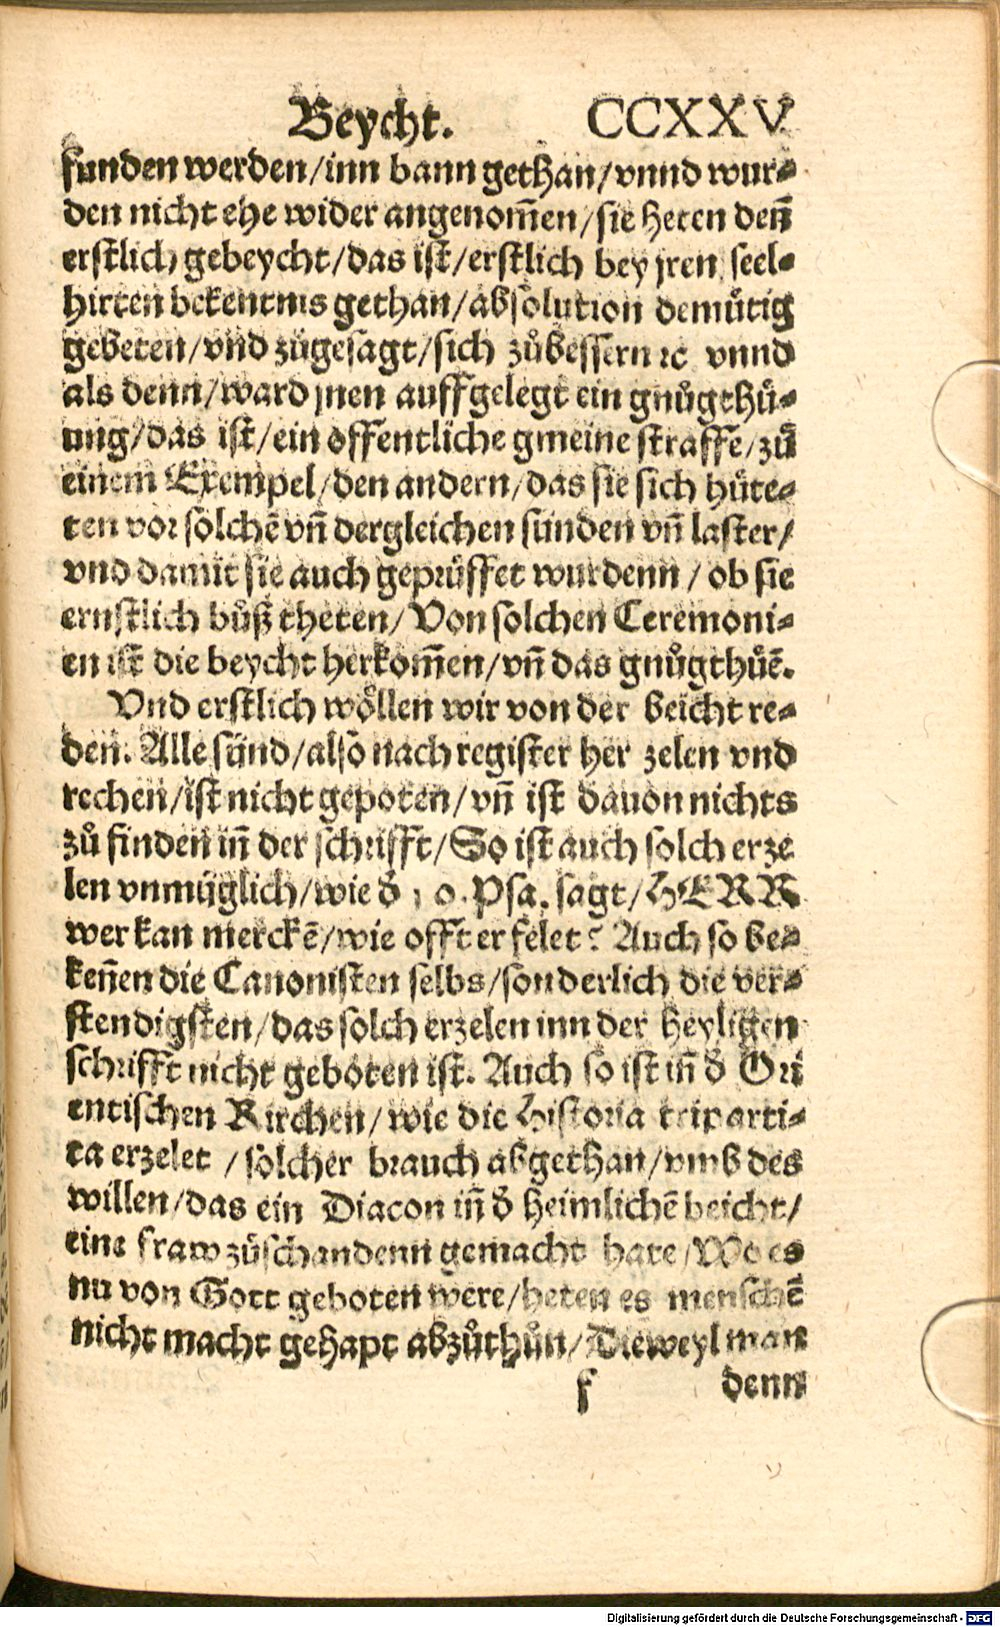 Beycht. CCXXV
funden werden/inn bann gethan/vnnd wur⸗
den nicht ehe wider angenom̄en/sie heten den̄
erstlich gebeycht/das ist/erstlich bey jren seel⸗
hirten bekentnis gethan/absolution demuͤtig
gebeten/vnd zůgesagt/sich zůbessern ꝛc vnnd
als denn/ward jnen auffgelegt ein gnůgthů⸗
ung/das ist/ein offentliche gmeine straffe/zů
einem Exempel/den andern/das sie sich hüte⸗
ten vor solchē vn̄ dergleichen sünden vn̄ laster/
vnd damit sie auch geprüffet wurdenn/ob sie
ernstlich bůß theten/Von solchen Ceremoni⸗
en ist die beycht herkom̄en/vn̄ das gnůgthůē.
Vnd erstlich woͤllen wir von der beicht re⸗
den. Alle sünd/also nach register her zelen vnd
rechen/ist nicht gepoten/vn̄ ist dauon nichts
zů finden in̄ der schrifft/So ist auch solch erze
len vnmüglich/wie d̕ Psa. sagt/HERR
wer kan merckē/wie offt er felet? Auch so be⸗
ken̄en die Canonisten selbs/sonderlich die ver⸗
stendigsten/das solch erzelen inn der heyligen
schrifft nicht geboten ist. Auch so ist in̄ d̕ Ori
entischen Kirchen/wie die Historia triparti⸗
ta erzelet/solcher brauch abgethan/vmb des
willen/das ein Diacon in̄ d̕ heimlichē beicht/
eine fraw zůschandenn gemacht hate/Wo es
nu von Gott geboten were/heten es menschē
nicht macht gehapt abzůthůn/Dieweyl man
f denn
Digitalisierung gefördert durch die Deutsche Forschungsgemeinschaft - DFG